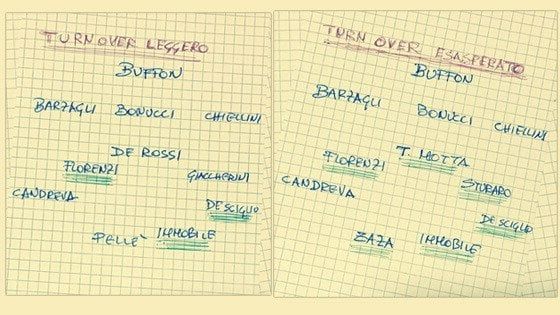 TURN OVER LEGGERO
BUFFON
BARZAGLI BONUCCI CHIELLINI
DE ROSSI
FLORENZI GIACCHERINI
CANDREVA DESCIGLIO
PELLÈ IMMOBILE
TURN OVER ESASPERATO
BUFFON
BARZAGLI BONUCCI CHIELLINI
FLORENZI T. MOTTA STURARO
CANDREVA DESCIGLIO
ZAZA IMMOBILE